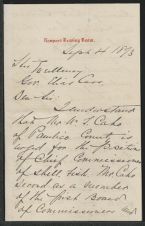 Sept 4 1893
His Excellency
Gov. Elias Carr
Dear Sir:
I understand
that Mr. W. T. Caho
of Pamlico County is
urged for the position
of Chief Commissioner
of Shell Fish. Mr Caho
served as a member
of the first Board
of Commissioners and